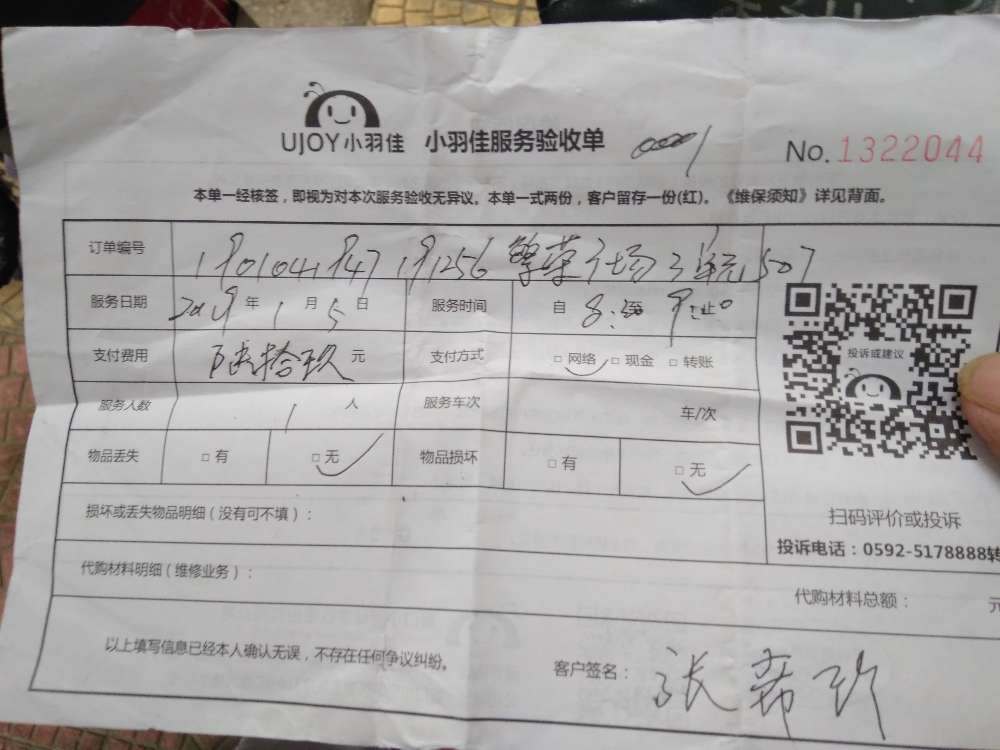 UJOY小羽佳 小羽佳服务验收单 0001 No.1322044
本单一经核签，即视为对本次服务验收无异议。本单一式两份，客户留存一份(红)。《维保须知》详见背面。
订单编号 1901041947191256 繁荣广场3单元1507
服务日期 2019年1月5日 服务时间 自8:至9:止
支付费用 陆拾玖元 支付方式 □网络 □现金 □转账
服务人数 1人 服务车次 车/次
物品丢失 □有 □无 物品损坏 □有 □无
投诉或建议
扫码评价或投诉
投诉电话：0592-5178888转
损坏或丢失物品明细（没有可不填）：
代购材料明细（维修业务）：
代购材料总额： 元
以上填写信息已经本人确认无误，不存在任何争议纠纷。
客户签名：张希